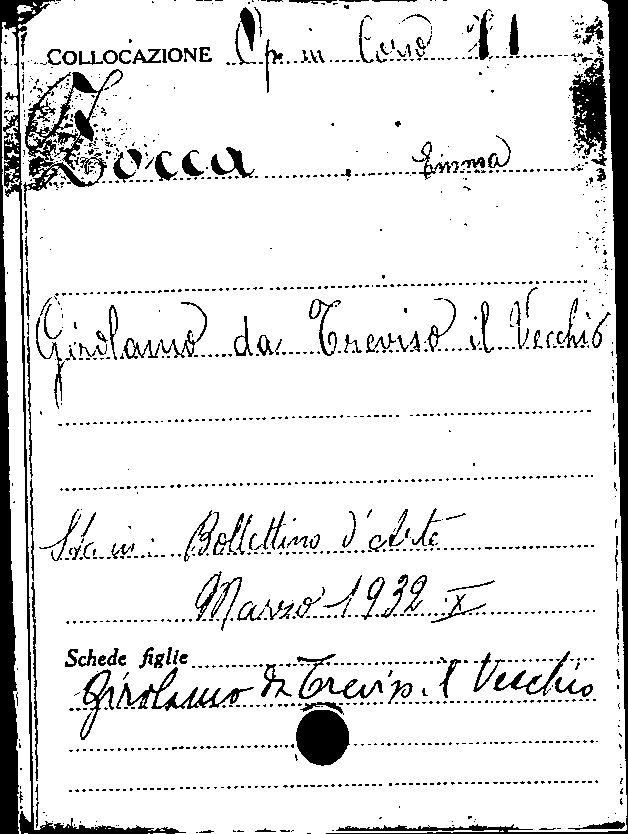 COLLOCAZIONE Op. in Corso 11
Zocca Emma
Girolamo da Treviso il Vecchio
Sta in: Bollettino d'Arte
Marzo 1932 X
Schede figlie
Girolamo da Treviso il Vecchio